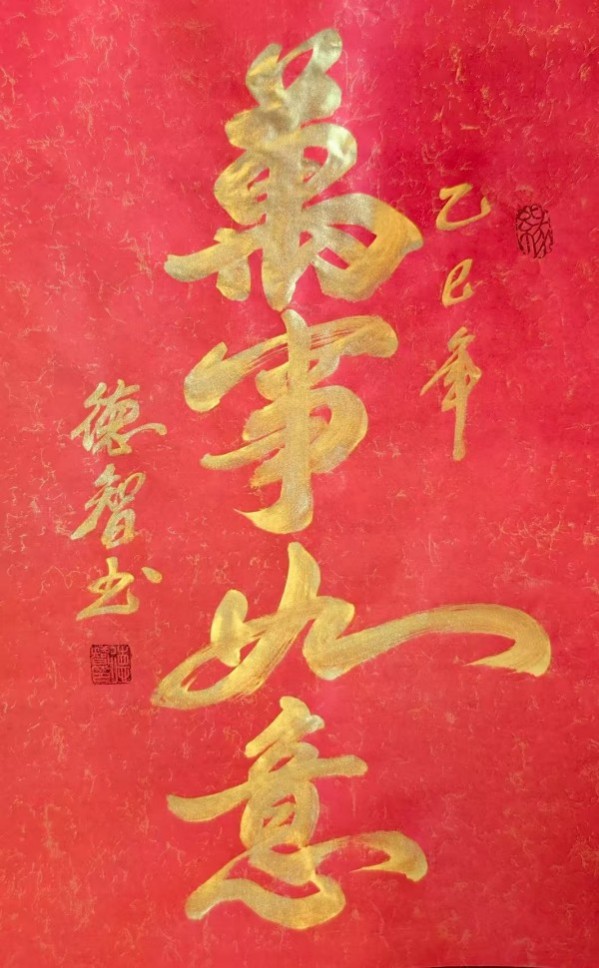 乙巳年
萬事如意
德智书